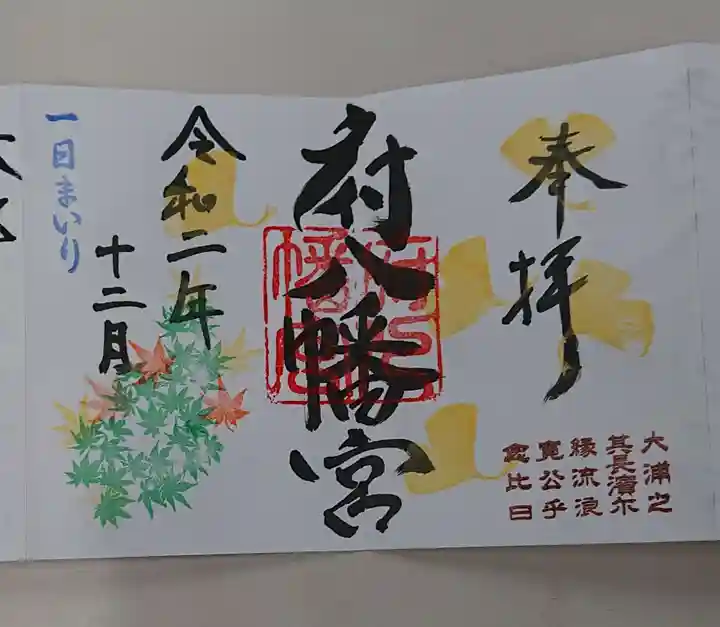 奉拝
大浦之
其長濱尓
縁流浪
寛公乎
念比日
府八幡宮
令和二年
十二月
一日まいり